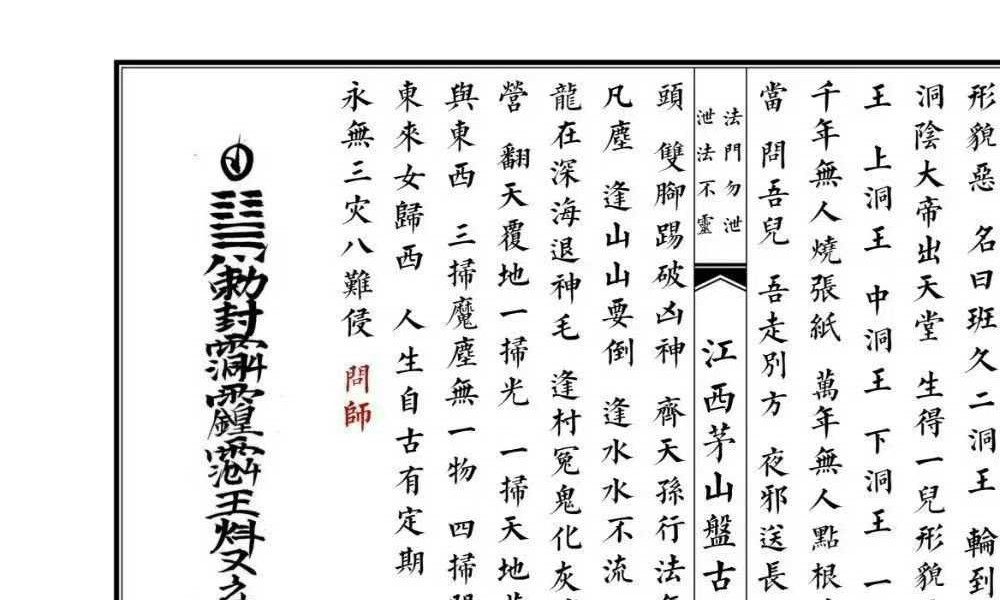 形貌惡 名曰班久二洞王 輪到
洞陰大帝出天堂 生得一兒形貌
王 上洞王 中洞王 下洞王 一
千年無人燒張紙 萬年無人點根
當 問吾兒 吾走別方 夜邪送長
法門勿泄
泄法不靈
江西茅山盤古
頭 雙腳踢破凶神 齊天孫行法
凡塵 逢山山要倒 逢水水不流
龍在深海退神毛 逢村冤鬼化灰
營 翻天覆地一掃光 一掃天地
與東西 三掃魔塵無一物 四掃
東來女歸西 人生自古有定期
永無三灾八難侵 問師
勅封
王